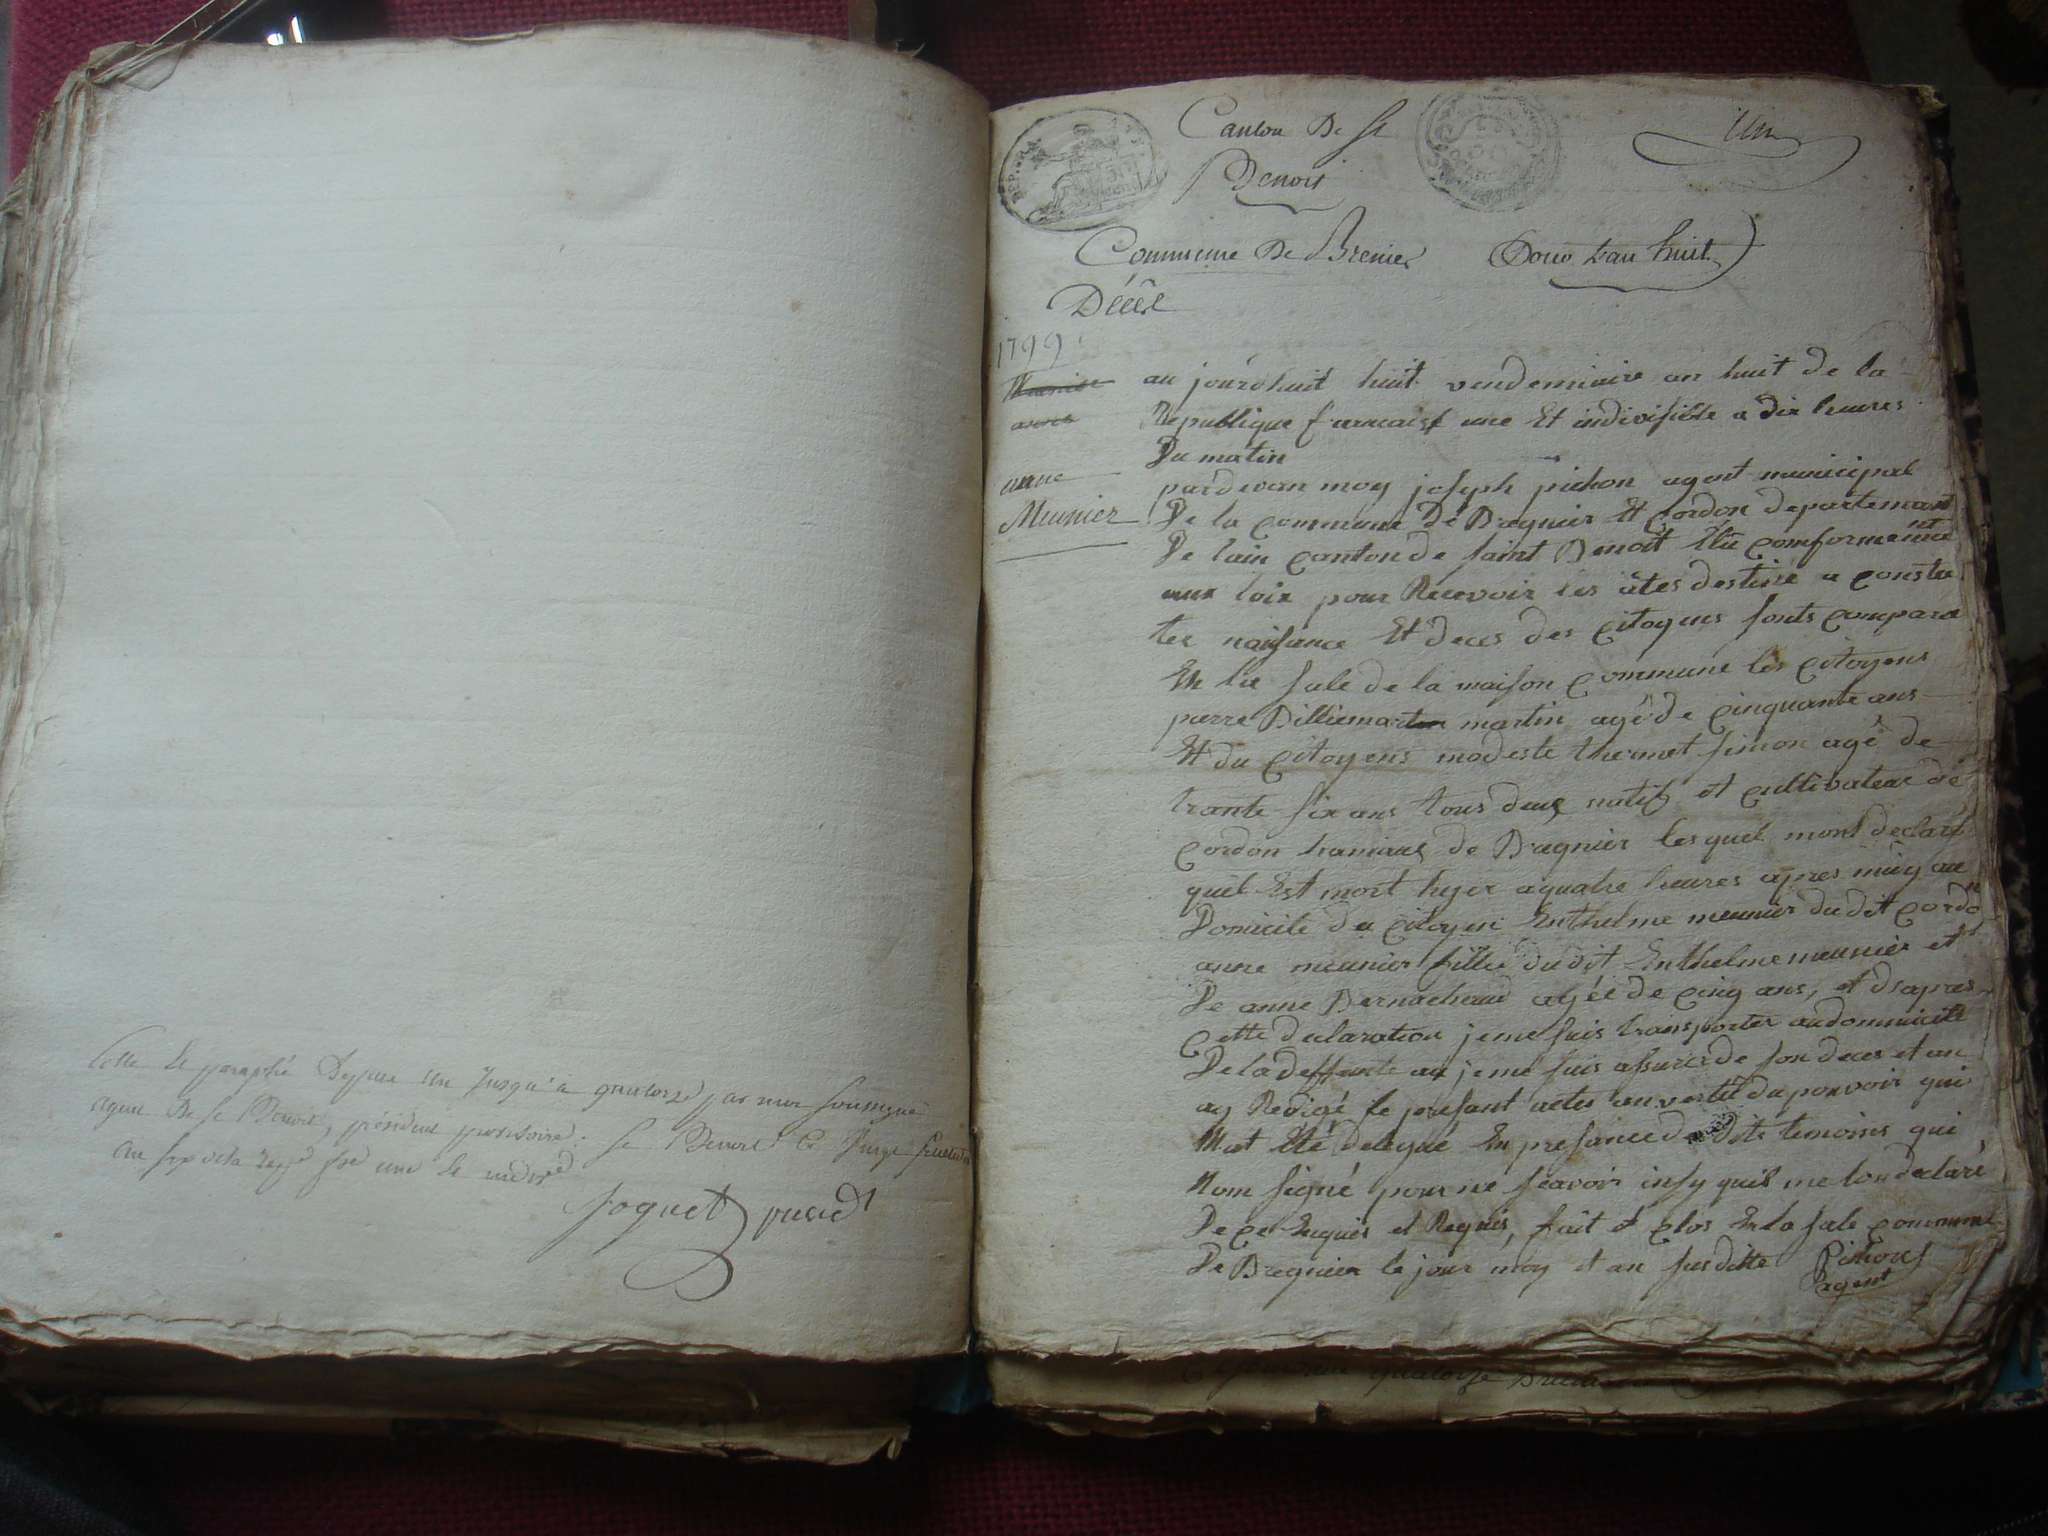 Cotté et paraphé depuis un jusqu'à quatorze par nous soussigné
agent de St Benoit, président provisoire. St Benoit Ce
an sept de la Repe fse une et indive
Joquet présidt
Canton De St
Benoit
Un
Commune De Brenier
Pour L'an huit
Décès
1799
anne
anne
Meunier
au jourdhuit huit vendemiaire an huit de la
Republique francaise une Et indivisible a dix heures
Du matin
pardevan moy joseph pichon agent municipal
De la commune de Bregnier Et Cordon departement
De lain canton de saint Benoit Elu comformement
aux loix pour Recevoir les âtes destiné a consta
ter naisance Et deces des citoyens sonts compara
En la sale de la maison commune les citoyens
pierre Billiemartin martin agé de cinquante ans
Et du citoyens modeste thermet simon agé de
trante six ans tous deux natif et cultivateur de
cordon hamaux de Bregnier lesquel mont declaré
quil Est mort hyer a quatre heures apres midy au
Domicile du citoyen Enthelme meunier du dit cordon
anne meunier fillie du dit Enthelme meunier et
De anne Bernachaud agée de cinq ans, et d'apres
cette declaration je me suis transporter au dommicile
De la deffunte au je me suis assuré de son deces et en
ay Redigé le presant actes en vertu du pouvoir qui
Mat Eté delegué En presance d dits temoins qui
Nom signé pour ne sçavoir insy quil me lon declaré
De ce Enquis et Requis, fait et clos En la sale commune
De Bregnier le jour moy et an susditte Pichon
agent
quatorze